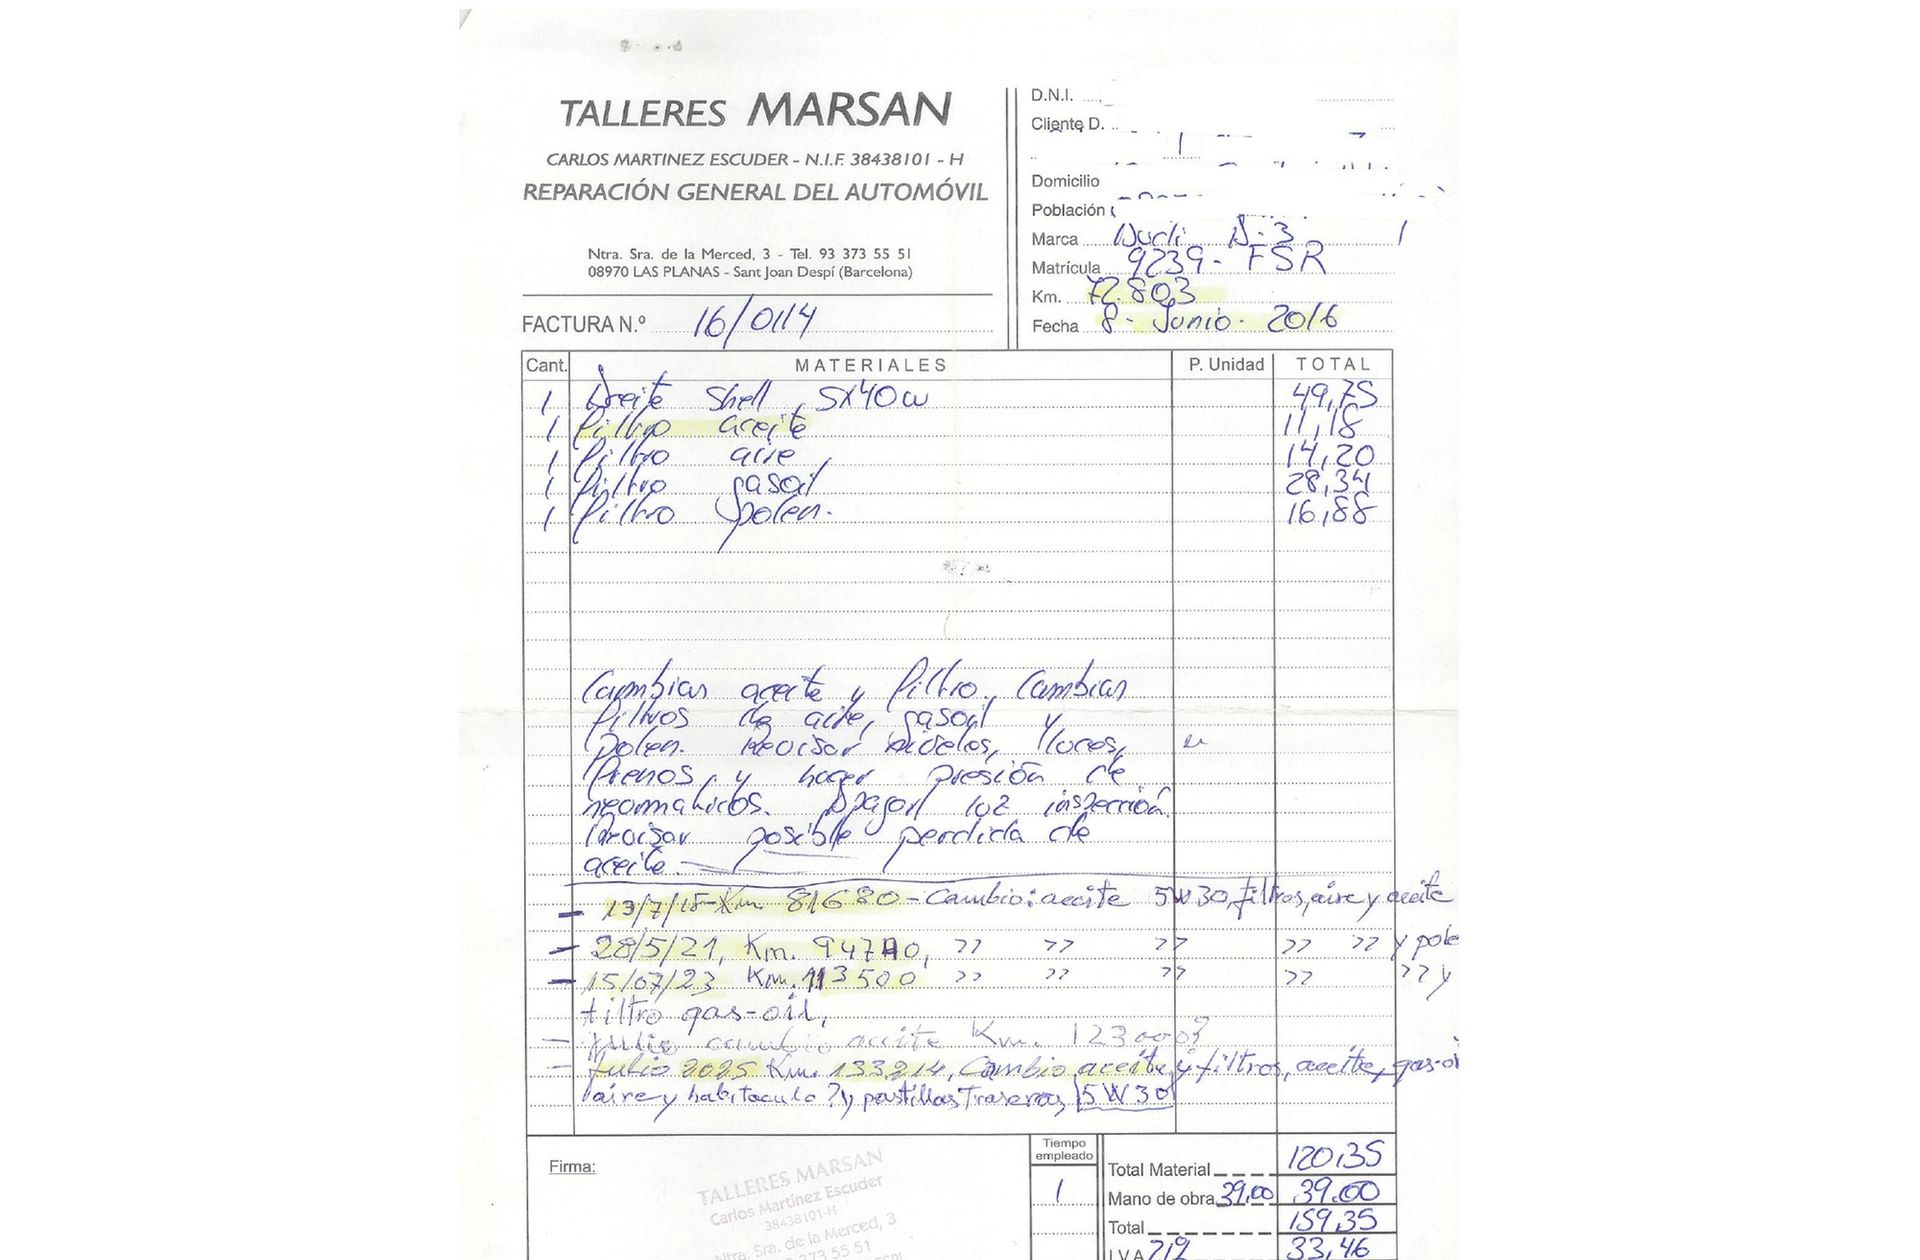 TALLERES MARSAN
CARLOS MARTINEZ ESCUDER - N.I.F. 38438101 - H
REPARACIÓN GENERAL DEL AUTOMÓVIL
Ntra. Sra. de la Merced, 3 - Tel. 93 373 55 51
08970 LAS PLANAS - Sant Joan Despí (Barcelona)
FACTURA N.º 16/0114
D.N.I.
Cliente D.
Domicilio
Población
Marca Audi A-3
Matrícula 9239-FSR
Km. 72.803
Fecha 8-Junio-2016
Cant. MATERIALES P. Unidad TOTAL
1 Aceite Shell 5x40w 49,75
1 Filtro aceite 11,18
1 Filtro aire 14,20
1 Filtro gasoil 28,34
1 Filtro polen. 16,88
Cambiar aceite y filtro, Cambiar
filtros de aire, gasoil y
polen. Revisar niveles, luces,
frenos, y hacer presión de
neomaticos. Apagar luz inspección.
Revisar posible perdida de
aceite.
- 13/7/18-Km 81680-Cambio: aceite 5W30, filtros, aire y aceite
- 28/5/21, Km. 94740, ,, ,, ,, ,, ,, y pole
- 15/07/23 Km. 113500 ,, ,, ,, ,, ,, y
filtro gas-oil,
- Julio cambio aceite Km. 123000?
- Julio 2025 Km. 133214, Cambio aceite y filtros, aceite, gas-oi
aire y habitaculo? y pastillas Traseras, 5W30
Firma:
TALLERES MARSAN
Carlos Martínez Escuder
38438101-H
Ntra. Sra. de la Merced, 3
373 55 51
Tiempo
empleado
1
Total Material 120,35
Mano de obra 39,00 39,00
Total 159,35
I.V.A 21% 33,46